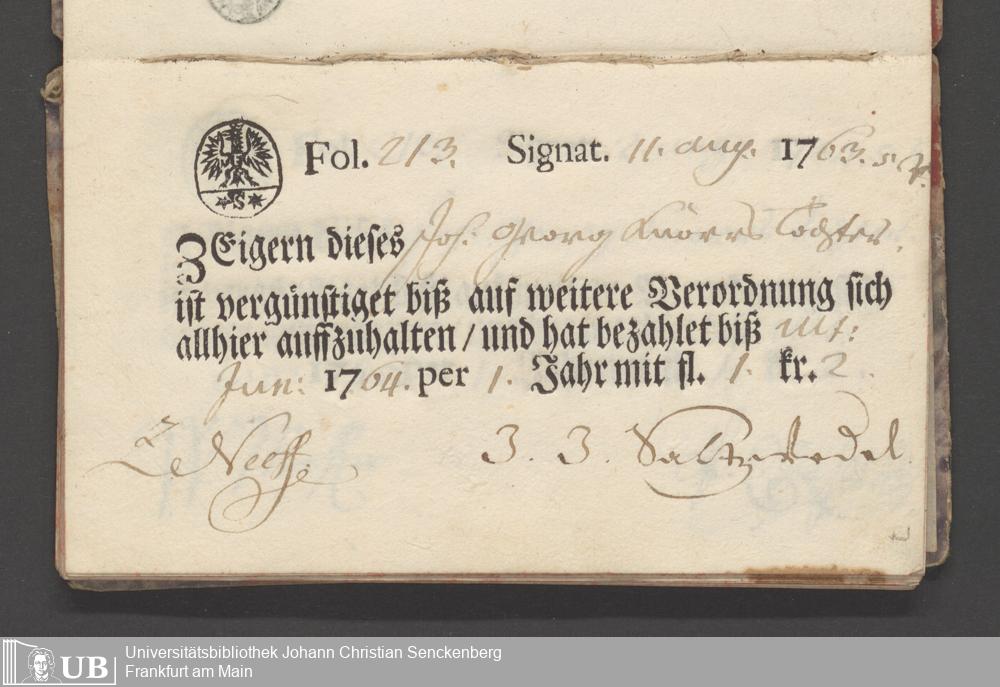 Fol. 213. Signat. 11. Aug. 1763.
S
ZEigern dieses Joh. Georg Knörrs Tochter.
ist vergünstiget biß auf weitere Verordnung sich
allhier auffzuhalten / und hat bezahlet biß ult:
Jun: 1764. per 1. Jahr mit fl. 1. kr. 2.
Neeff J. J. Saltzwedel
UB Universitätsbibliothek Johann Christian Senckenberg
Frankfurt am Main